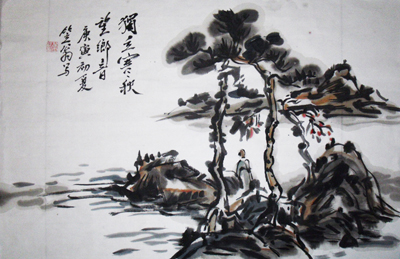 獨立寒秋
望鄉
庚寅初夏
翁写